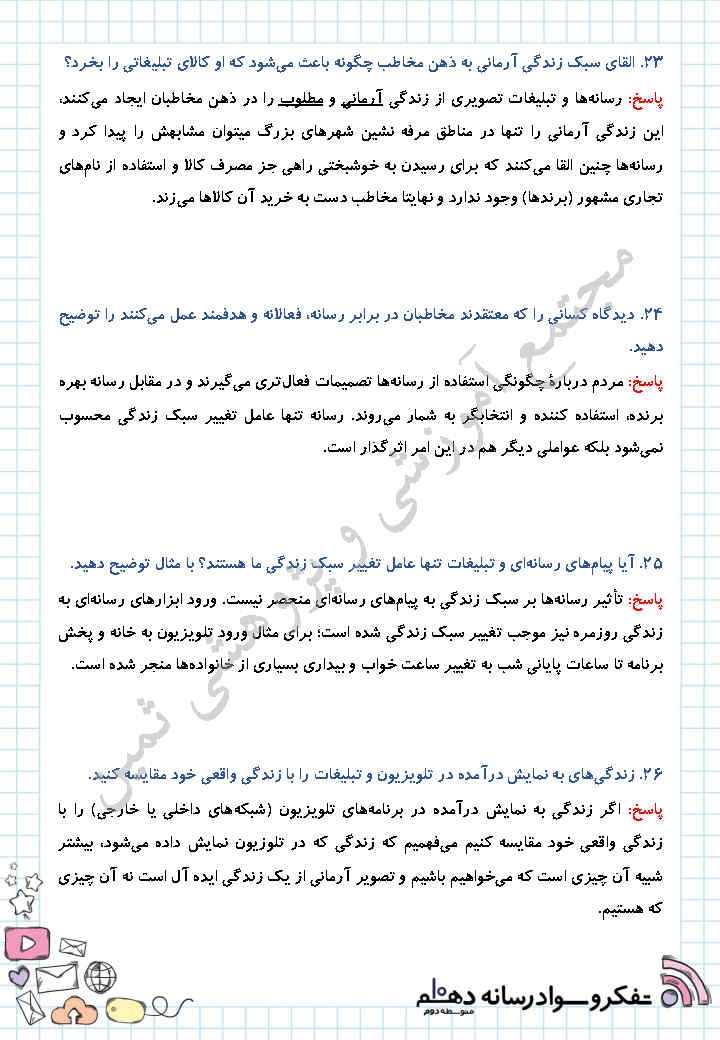 ۲۳. القای سبک زندگی آرمانی به ذهن مخاطب چگونه باعث می‌شود که او کالای تبلیغاتی را بخرد؟
پاسخ: رسانه‌ها و تبلیغات تصویری از زندگی آرمانی و مطلوب را در ذهن مخاطبان ایجاد می‌کنند،
این زندگی آرمانی را تنها در مناطق مرفه نشین شهرهای بزرگ میتوان مشابهش را پیدا کرد و
رسانه‌ها چنین القا می‌کنند که برای رسیدن به خوشبختی راهی جز مصرف کالا و استفاده از نام‌های
تجاری مشهور (برندها) وجود ندارد و نهایتا مخاطب دست به خرید آن کالاها می‌زند.
۲۴. دیدگاه کسانی را که معتقدند مخاطبان در برابر رسانه، فعالانه و هدفمند عمل می‌کنند را توضیح
دهید.
پاسخ: مردم دربارهٔ چگونگی استفاده از رسانه‌ها تصمیمات فعال‌تری می‌گیرند و در مقابل رسانه بهره
برنده، استفاده کننده و انتخابگر به شمار می‌روند. رسانه تنها عامل تغییر سبک زندگی محسوب
نمی‌شود بلکه عواملی دیگر هم در این امر اثرگذار است.
۲۵. آیا پیام‌های رسانه‌ای و تبلیغات تنها عامل تغییر سبک زندگی ما هستند؟ با مثال توضیح دهید.
پاسخ: تأثیر رسانه‌ها بر سبک زندگی به پیام‌های رسانه‌ای منحصر نیست. ورود ابزارهای رسانه‌ای به
زندگی روزمره نیز موجب تغییر سبک زندگی شده است؛ برای مثال ورود تلویزیون به خانه و پخش
برنامه تا ساعات پایانی شب به تغییر ساعت خواب و بیداری بسیاری از خانواده‌ها منجر شده است.
۲۶. زندگی‌های به نمایش درآمده در تلویزیون و تبلیغات را با زندگی واقعی خود مقایسه کنید.
پاسخ: اگر زندگی به نمایش درآمده در برنامه‌های تلویزیون (شبکه‌های داخلی یا خارجی) را با
زندگی واقعی خود مقایسه کنیم می‌فهمیم که زندگی که در تلوزیون نمایش داده می‌شود، بیشتر
شبیه آن چیزی است که می‌خواهیم باشیم و تصویر آرمانی از یک زندگی ایده آل است نه آن چیزی
که هستیم.
مجتمع آموزشی و پژوهشی ثمین
تفکر و سواد رسانه دهم
متوسطه دوم